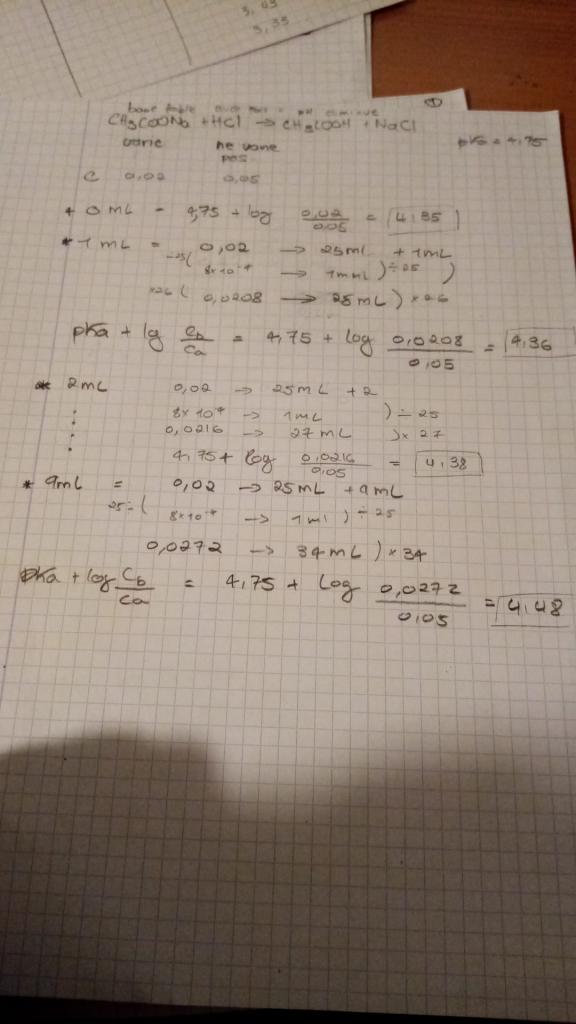 3,49
3,33
base faible
CH3COONa + HCl → CH3COOH + NaCl
varie ne varie pas
pKa = 4,75
C 0,02 0,05
* 0 mL = 4,75 + log 0,02/0,05 = 4,35
* 1 mL = 0,02 → 25ml + 1mL
÷25( 8x10⁻⁴ → 1ml )÷25 )
x26 ( 0,0208 → 26 mL ) x 26
pKa + lg Cb/Ca = 4,75 + log 0,0208/0,05 = 4,36
* 2 mL 0,02 → 25mL + 2
8x10⁻⁴ → 1mL ) ÷ 25
0,0216 → 27 mL )x 27
4,75 + log 0,0216/0,05 = 4,38
* 9mL = 0,02 → 25mL + 9mL
25÷( 8x10⁻⁴ → 1ml ) ÷ 25
0,0272 → 34mL ) x 34
pKa + log Cb/Ca = 4,75 + Log 0,0272/0,05 = 4,48